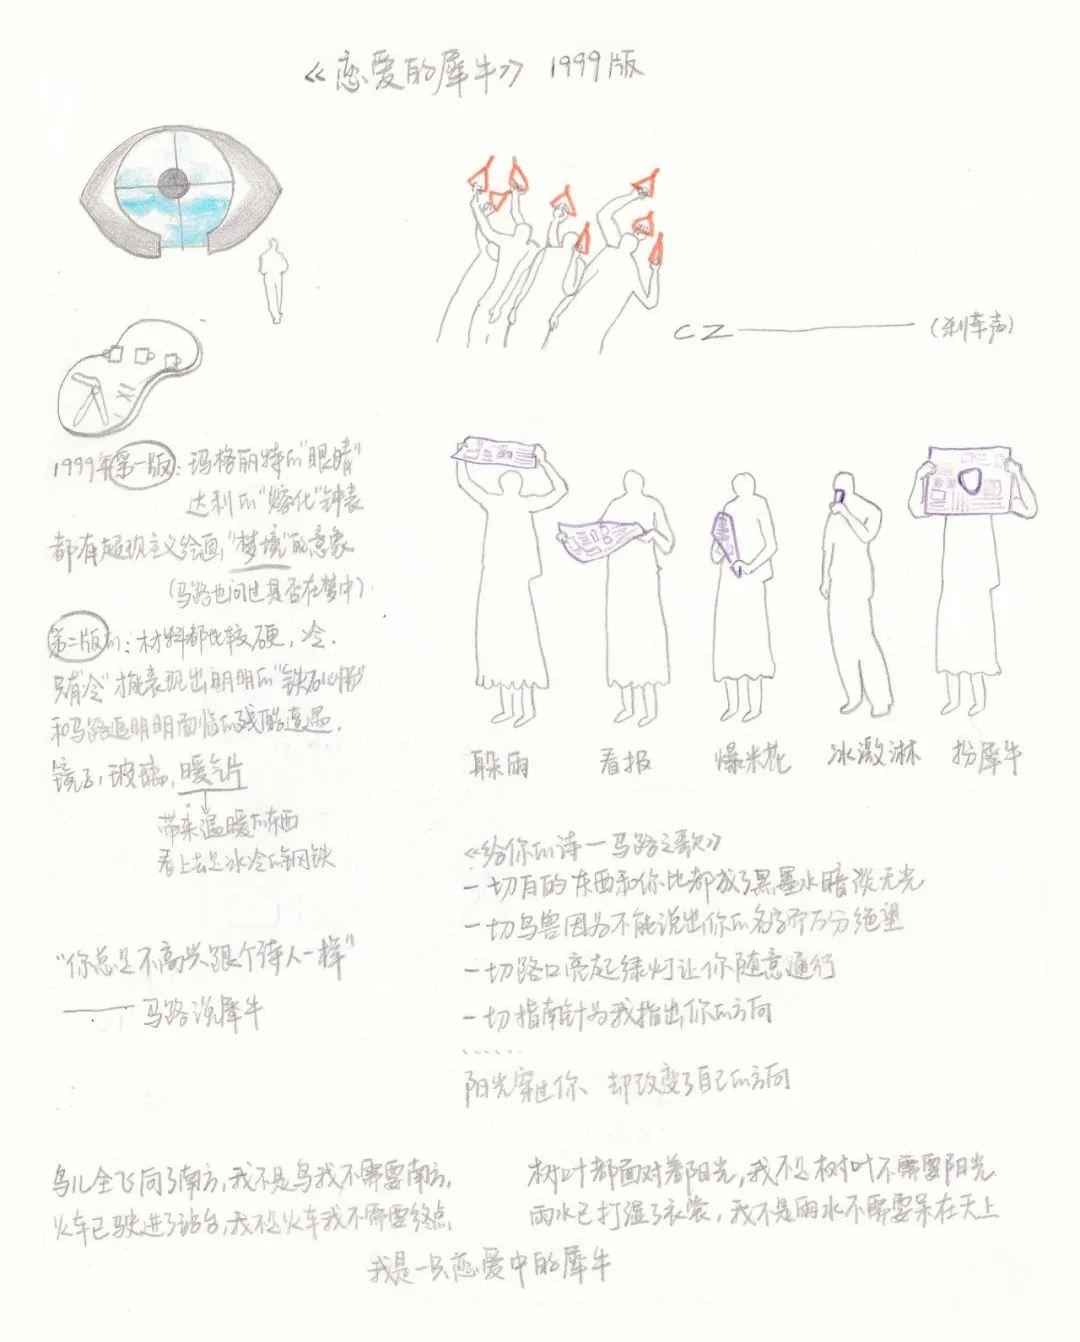 《恋爱的犀牛》 1999版
CZ———————(刹车声)
1999年第一版:玛格丽特的"眼睛"
达利的"熔化"钟表
都有超现主义绘画,"梦境"的意象
(马路也问过是否在梦中)
第二版的:材料都比较硬,冷.
只有"冷"才能表现出明明的"铁石心肠"
和马路追明明面临的残酷遭遇.
镜子,玻璃,暖气片
带来温暖的东西
看上去是冰冷的钢铁
躲雨
看报
爆米花
冰激淋
扮犀牛
"你总是不高兴跟个诗人一样"
——— 马路说犀牛
《给你的诗—马路之歌》
一切有的东西和你比都成了黑墨水暗淡无光
一切鸟兽因为不能说出你的名字而万分绝望
一切路口亮起绿灯让你随意通行
一切指南针为我指出你的方向
......
阳光穿过你、却改变了自己的方向
鸟儿全飞向了南方,我不是鸟我不需要南方,
火车已驶进了站台,我不是火车我不需要终点,
树叶都面对着阳光,我不是树叶不需要阳光
雨水已打湿了衣裳,我不是雨水不需要呆在天上
我是一只恋爱中的犀牛